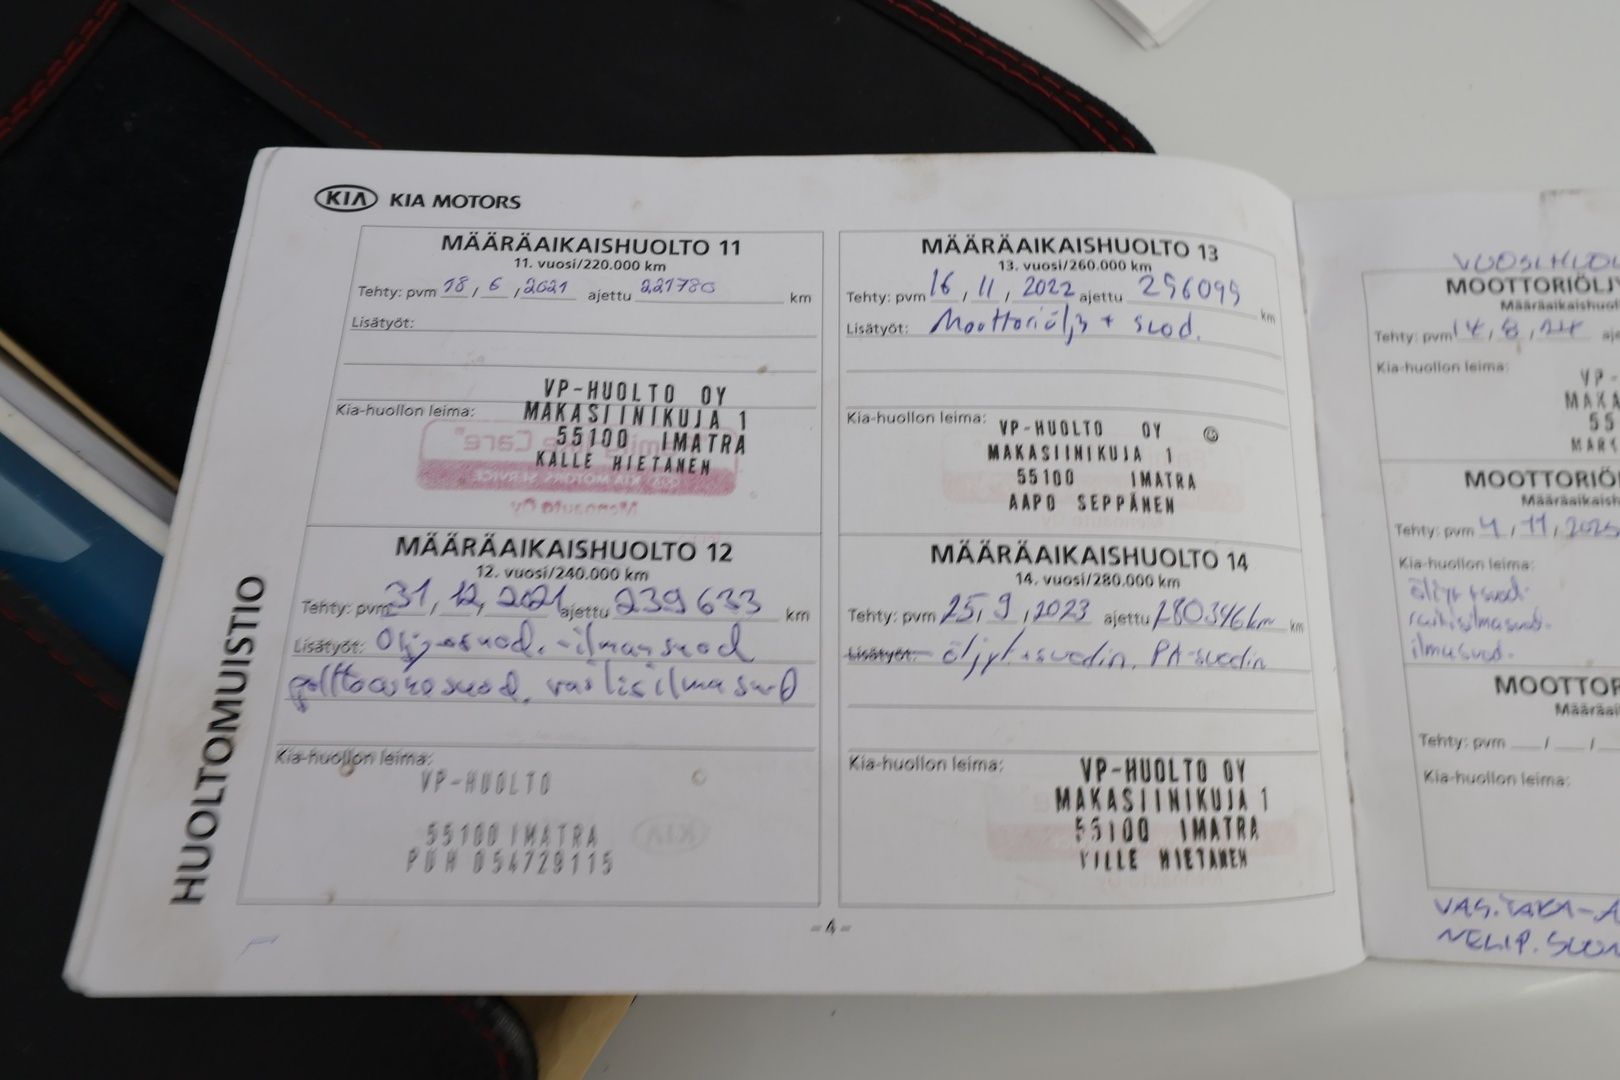 KIA KIA MOTORS
HUOLTOMUISTIO
MÄÄRÄAIKAISHUOLTO 11
11. vuosi/220.000 km
Tehty: pvm 18 / 6 / 2021 ajettu 221780 km
Lisätyöt:
Kia-huollon leima:
VP-HUOLTO OY
MAKASIINIKUJA 1
55100 IMATRA
KALLE HIETANEN
MÄÄRÄAIKAISHUOLTO 12
12. vuosi/240.000 km
Tehty: pvm 31 / 12 / 2021 ajettu 239633 km
Lisätyöt: Öljy+suod. -ilmansuod
polttoainesuod, raitisilmasuod
Kia-huollon leima:
VP-HUOLTO
55100 IMATRA
PUH 054729115
MÄÄRÄAIKAISHUOLTO 13
13. vuosi/260.000 km
Tehty: pvm 16 / 11 / 2022 ajettu 256099 km
Lisätyöt: Moottoriöljy + suod.
Kia-huollon leima:
VP-HUOLTO OY
MAKASIINIKUJA 1
55100 IMATRA
AAPO SEPPÄNEN
MÄÄRÄAIKAISHUOLTO 14
14. vuosi/280.000 km
Tehty: pvm 25 / 9 / 2023 ajettu 280346km km
Lisätyöt: öljyt+suodin, PA-suodin
Kia-huollon leima:
VP-HUOLTO OY
MAKASIINIKUJA 1
55100 IMATRA
VILLE HIETANEN
-4-
VUOSIHUOL
MOOTTORIÖLJY
Määräaikaishuol
Tehty: pvm 14 / 8 / 24 aj
Kia-huollon leima:
VP-
MAKA
55
MOOTTORIÖ
Määräaikaish
Tehty: pvm 4 / 11 / 2025
Kia-huollon leima:
öljyt+suod.
raitisilmasuod.
ilmasuod.
MOOTTOR
Määräai
Tehty: pvm / /
Kia-huollon leima:
VAS. TAKA-A
NELIP. SUOR